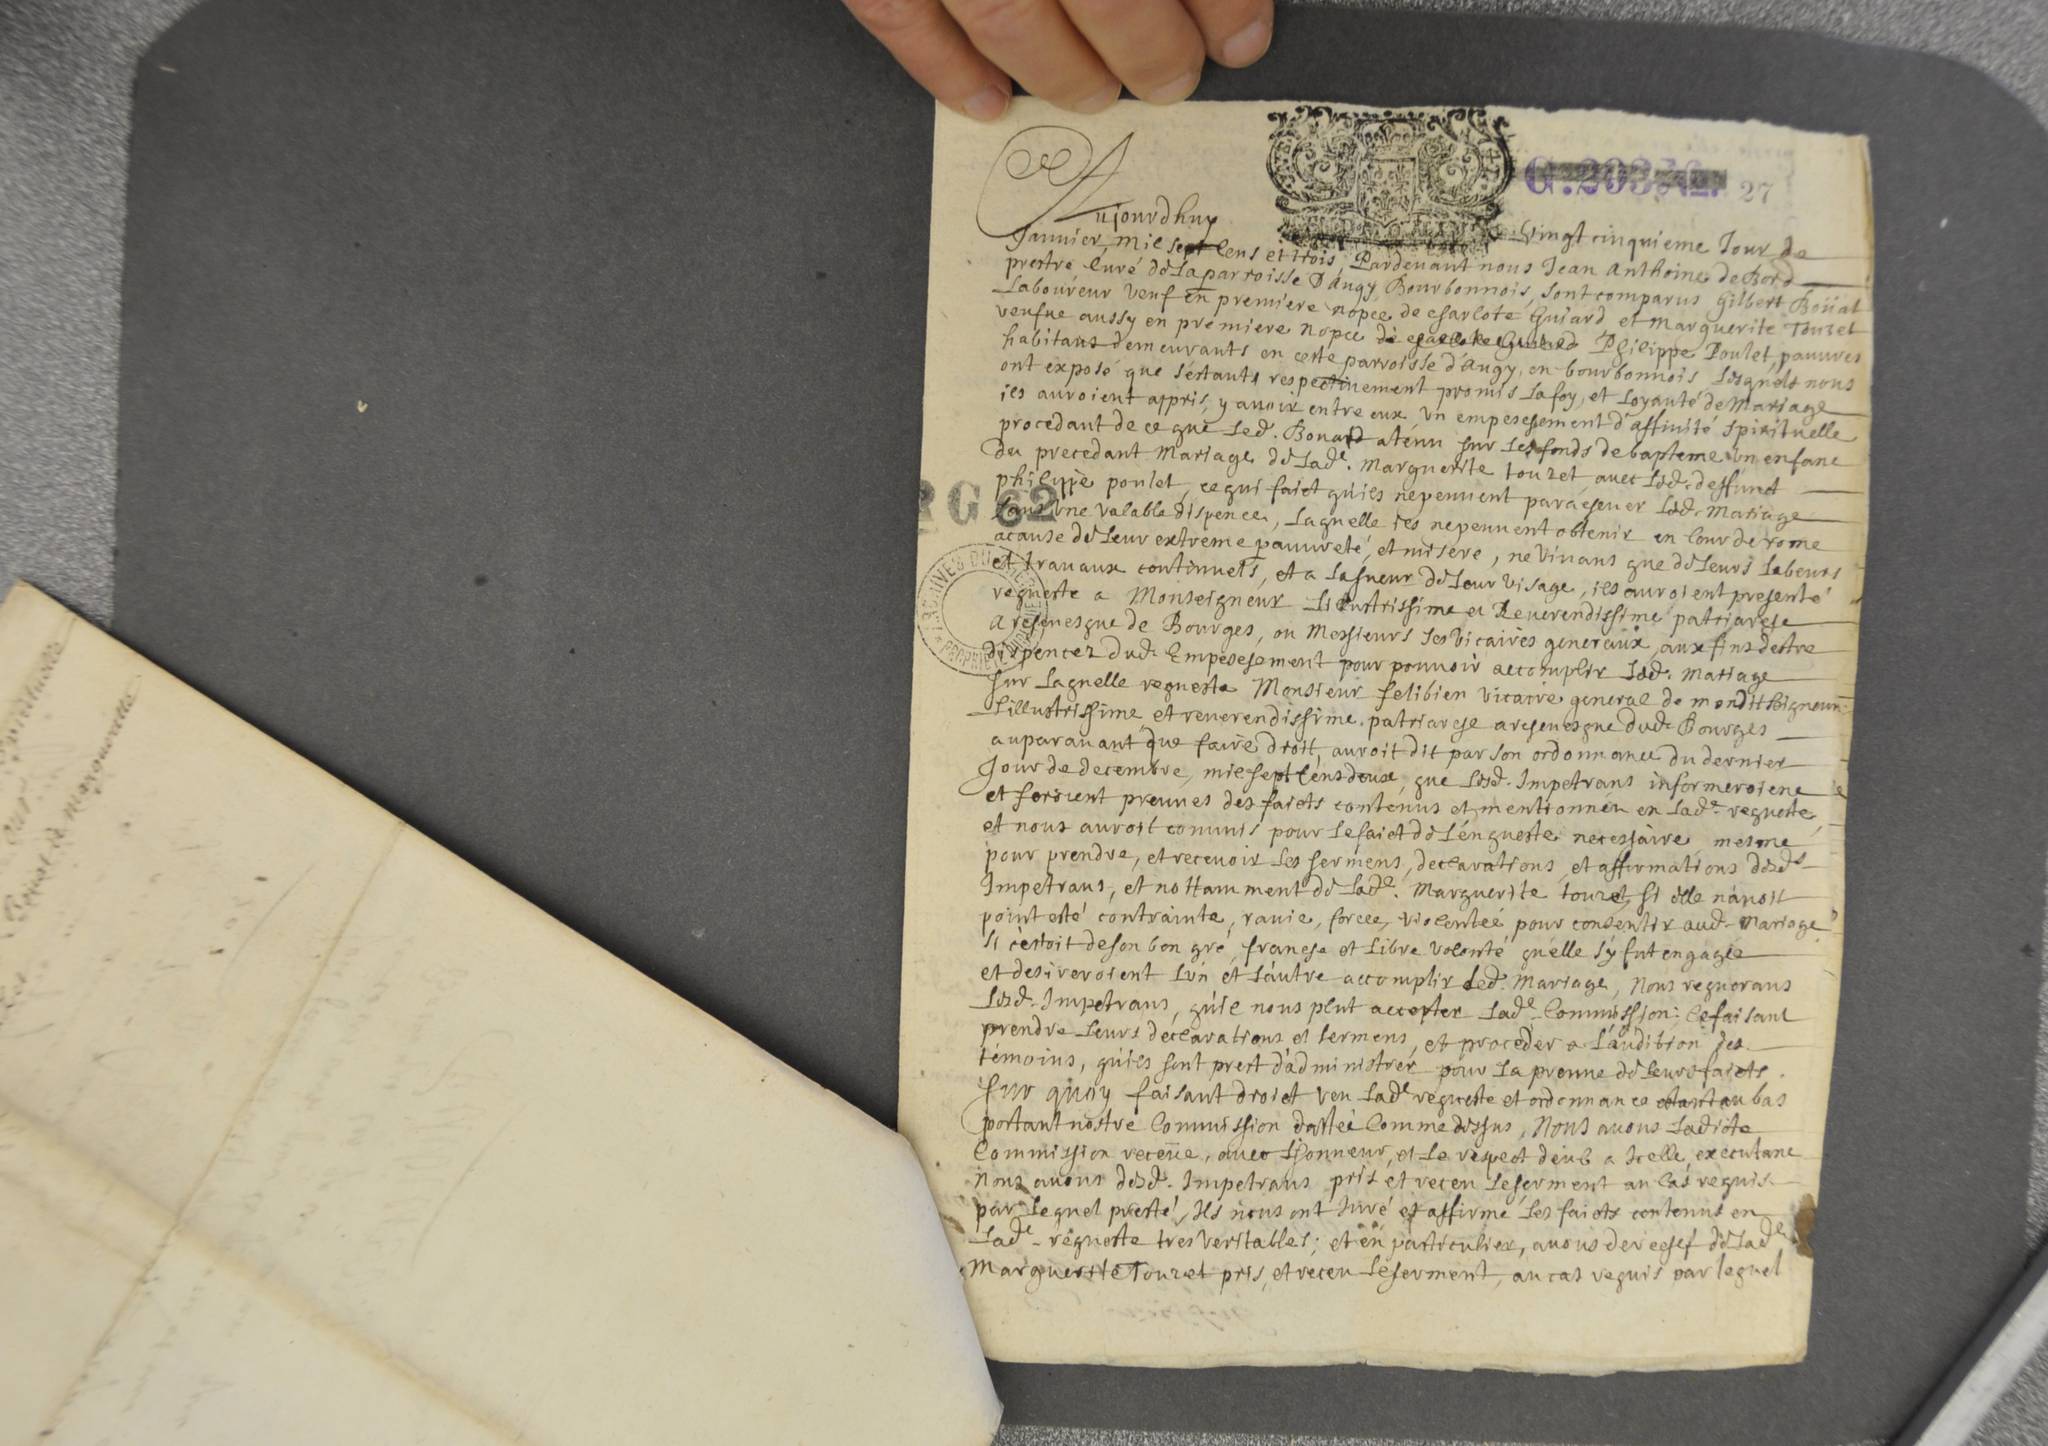 G. 20352. 27
Aujourdhuy vingt cinquieme Jour de
Janvier, mil sept Cens et trois, Pardevant nous Jean Anthoine deBord
prestre Curé de la parroisse D'augy Bourbonnois, sont comparus Gilbert Boüat
Laboureur veuf en premiere nopce de charlote Guiard et Marguerite Touzet
veufue aussy en premiere nopce de Philippe Poulet, pauvres
habitans demeurants en ceste parroisse d'augy, en bourbonnois, Lesquels nous
ont exposé que s'estants respectivement promis la foy, et Loyauté de Mariage
ils auroient appris, y avoir entre eux un empeschement d'affinité spirituelle
procedant de ce que Led. Bouat a tenu sur les fonds de bapteme un enfant
du precedant Mariage de Lade. Marguerite touzet avec Led. deffunct
philippe poulet, ce qui faict qu'ils ne peuvent parachever Led. Mariage
sans une valable dispence, Laquelle ils ne peuvent obtenir en Cour de rome
a cause de Leur extreme pauvreté, et misere, ne vivans que de Leurs Labeurs
et travaux continuels, et a la sueur de Leur visage, ils auroient presenté
requeste a Monseigneur Lillustrissime et Reverendissime patriarche
archevesque de Bourges, ou Messieurs les vicaires generaux, aux fins destre
dispencez dud. Empeschement pour pouvoir accomplir Led. Mariage
sur Laquelle requeste Monsieur felibien vicaire general de mondit seigneur
Lillustrissime et reverendissime patriarche archevesque dud. Bourges
auparavant que faire droit, auroit dit par son ordonnance du dernier
Jour de decembre, mil sept Cens deux, que Lesd. Impetrans informeroient
et feroient preuves des faicts contenus et mentionnéz en Lade. requeste,
et nous auroit commis pour le faict de L'enqueste necessaire, mesme
pour prendre, et recevoir les sermens, declarations, et affirmations desd.
Impetrans, et nottamment de Lade. Marguerite touzet, si elle n'avoit
point esté contrainte, ravie, forcée, violentée pour consentir aud. Mariage
si c'estoit de son bon gré, franche et libre volonté qu'elle s'y fut engagée
et desireroient L'un et L'autre accomplir Led. Mariage, Nous requerans
Lesd. Impetrans, qu'il nous plut accepter Lade. Commission; Ce faisant
prendre Leurs declarations et sermens, et proceder a L'audition des
témoins, qu'ils sont prest d'administrer pour La preuve de Leurs faicts.
Sur quoy faisant droict veu Lade. requeste et ordonnance estant au bas
portant nostre Commission dattée Comme dessus, Nous avons Ladicte
Commission receüe, avec L'honneur, et Le respect deub a Icelle, executant
Nous avons desd. Impetrans pris et receu Le serment au Cas requis.
par Lequel presté, Ils nous ont Juré et affirmé Les faicts contenus en
Lade. requeste tres veritables; et en particulier, avons derechef de Lade.
Marguerite Touzet pris, et receu Le serment, au cas requis par Lequel
RG 62
ARCHIVES DU CHER
PROPRIÉTÉ PUBLIQUE
spirituelle
de marguerite